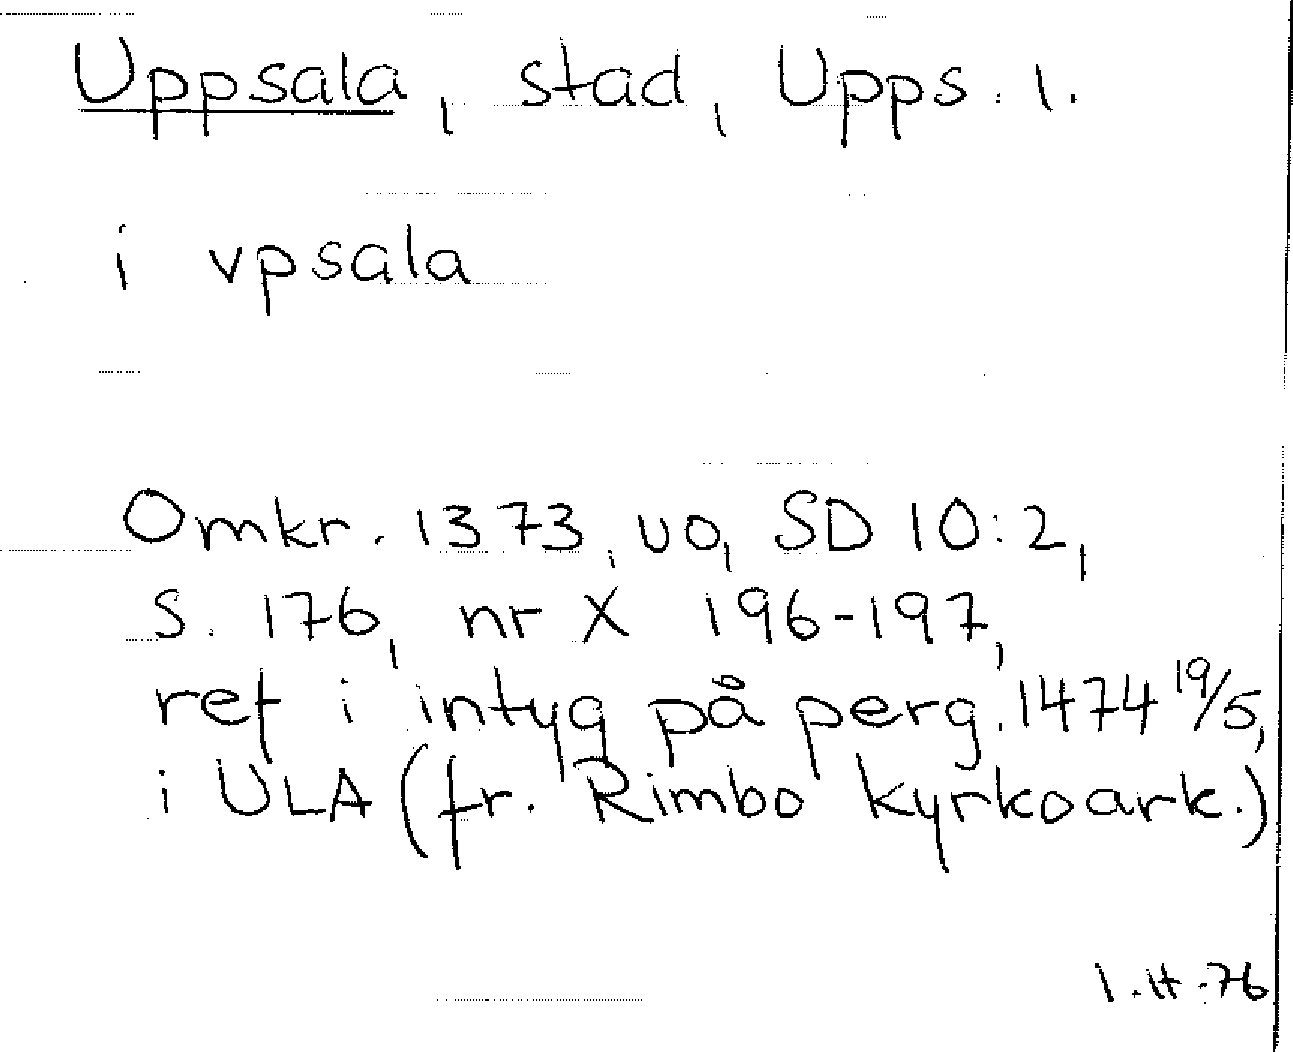 Uppsala, stad, Upps. l.
i vpsala
Omkr. 1373, uo, SD 10:2,
s. 176, nr X 196-197,
ref i intyg på perg. 1474 19/5,
i ULA (fr. Rimbo kyrkoark.)